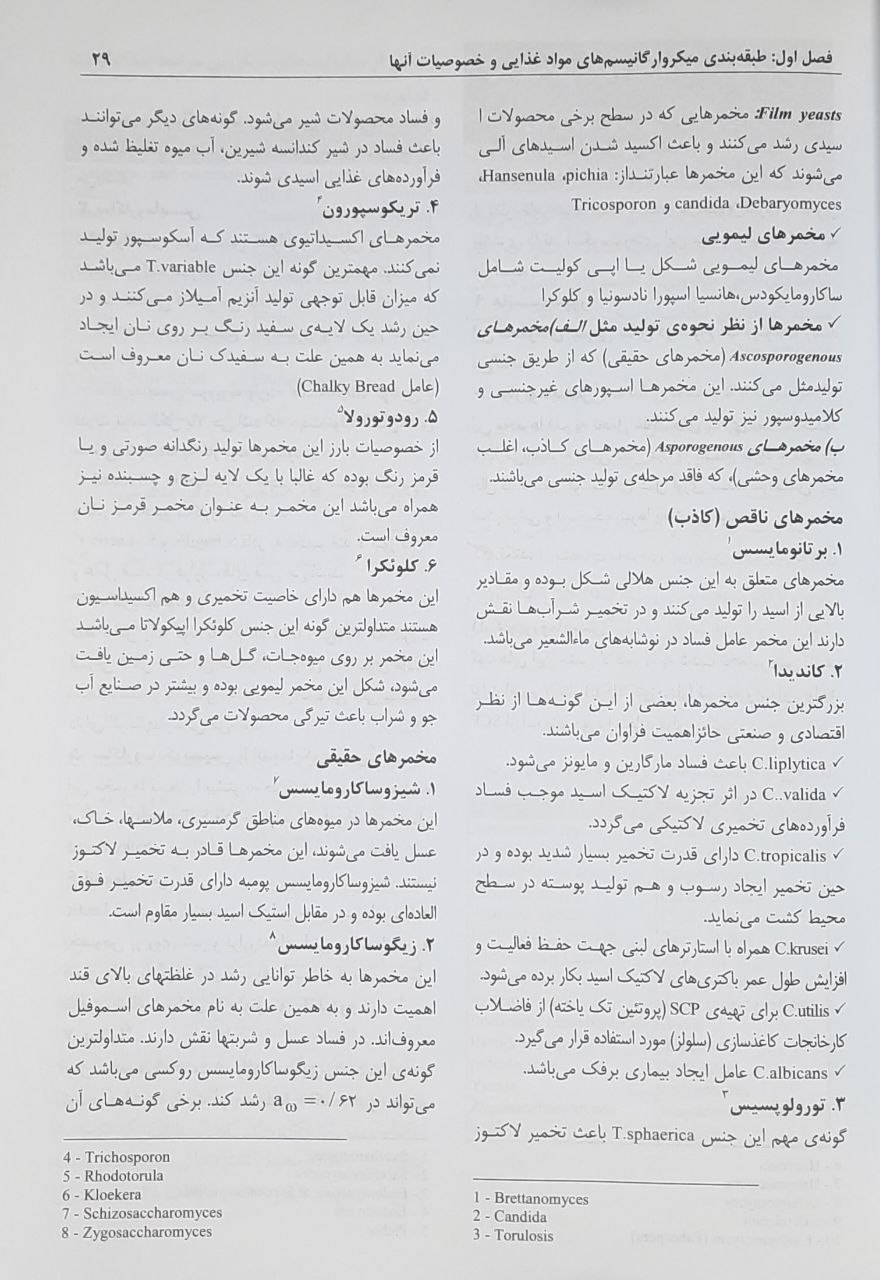 فصل اول: طبقه‌بندی میکروارگانیسم‌های مواد غذایی و خصوصیات آنها ۲۹
Film yeasts: مخمرهایی که در سطح برخی محصولات ا
سیدی رشد می‌کنند و باعث اکسید شدن اسیدهای آلی
می‌شوند که این مخمرها عبارتنداز: Hansenula ،pichia،
Debaryomyces، candida و Tricosporon
✓ مخمرهای لیمویی
مخمرهای لیمویی شکل یا اپی کولیت شامل
ساکارومایکودس،هانسیا اسپورا نادسونیا و کلوکرا
✓ مخمرها از نظر نحوه‌ی تولید مثل الف)مخمرهای
Ascosporogenous (مخمرهای حقیقی) که از طریق جنسی
تولیدمثل می‌کنند. این مخمرها اسپورهای غیرجنسی و
کلامیدوسپور نیز تولید می‌کنند.
ب) مخمرهای Asporogenous (مخمرهای کاذب، اغلب
مخمرهای وحشی)، که فاقد مرحله‌ی تولید جنسی می‌باشند.
مخمرهای ناقص (کاذب)
۱. برتانومایسس۱
مخمرهای متعلق به این جنس هلالی شکل بوده و مقادیر
بالایی از اسید را تولید می‌کنند و در تخمیر شرآب‌ها نقش
دارند این مخمر عامل فساد در نوشابه‌های ماءالشعیر می‌باشد.
۲. کاندیدا۲
بزرگترین جنس مخمرها، بعضی از این گونه‌ها از نظر
اقتصادی و صنعتی حائزاهمیت فراوان می‌باشند.
✓ C.liplytica باعث فساد مارگارین و مایونز می‌شود.
✓ C..valida در اثر تجزیه لاکتیک اسید موجب فساد
فرآورده‌های تخمیری لاکتیکی می‌گردد.
✓ C.tropicalis دارای قدرت تخمیر بسیار شدید بوده و در
حین تخمیر ایجاد رسوب و هم تولید پوسته در سطح
محیط کشت می‌نماید.
✓ C.krusei همراه با استارترهای لبنی جهت حفظ فعالیت و
افزایش طول عمر باکتری‌های لاکتیک اسید بکار برده می‌شود.
✓ C.utilis برای تهیه‌ی SCP (پروتئین تک یاخته) از فاضلاب
کارخانجات کاغذسازی (سلولز) مورد استفاده قرار می‌گیرد.
✓ C.albicans عامل ایجاد بیماری برفک می‌باشد.
۳. تورولوپسیس۳
گونه‌ی مهم این جنس T.sphaerica باعث تخمیر لاکتوز
1 - Brettanomyces
2 - Candida
3 - Torulosis
و فساد محصولات شیر می‌شود. گونه‌های دیگر می‌توانند
باعث فساد در شیر کندانسه شیرین، آب میوه تغلیظ شده و
فرآورده‌های غذایی اسیدی شوند.
۴. تریکوسپورون۴
مخمرهای اکسیداتیوی هستند که آسکوسپور تولید
نمی‌کنند. مهمترین گونه این جنس T.variable می‌باشد
که میزان قابل توجهی تولید آنزیم آمیلاز می‌کنند و در
حین رشد یک لایه‌ی سفید رنگ بر روی نان ایجاد
می‌نماید به همین علت به سفیدک نان معروف است
(عامل Chalky Bread)
۵. رودوتورولا۵
از خصوصیات بارز این مخمرها تولید رنگدانه صورتی و یا
قرمز رنگ بوده که غالبا با یک لایه لزج و چسبنده نیز
همراه می‌باشد این مخمر به عنوان مخمر قرمز نان
معروف است.
۶. کلوئکرا۶
این مخمرها هم دارای خاصیت تخمیری و هم اکسیداسیون
هستند متداولترین گونه این جنس کلوئکرا اپیکولاتا می‌باشد
این مخمر بر روی میوه‌جات، گل‌ها و حتی زمین یافت
می‌شود، شکل این مخمر لیمویی بوده و بیشتر در صنایع آب
جو و شراب باعث تیرگی محصولات می‌گردد.
مخمرهای حقیقی
۱. شیزوساکارومایسس۷
این مخمرها در میوه‌های مناطق گرمسیری، ملاسها، خاک،
عسل یافت می‌شوند، این مخمرها قادر به تخمیر لاکتوز
نیستند. شیزوساکارومایسس پومبه دارای قدرت تخمیر فوق
العاده‌ای بوده و در مقابل استیک اسید بسیار مقاوم است.
۲. زیگوساکارومایسس۸
این مخمرها به خاطر توانایی رشد در غلظتهای بالای قند
اهمیت دارند و به همین علت به نام مخمرهای اسموفیل
معروف‌اند. در فساد عسل و شربتها نقش دارند. متداولترین
گونه‌ی این جنس زیگوساکارومایسس روکسی می‌باشد که
می‌تواند در aω =۰/۶۲ رشد کند. برخی گونه‌های آن
4 - Trichosporon
5 - Rhodotorula
6 - Kloekera
7 - Schizosaccharomyces
8 - Zygosaccharomyces